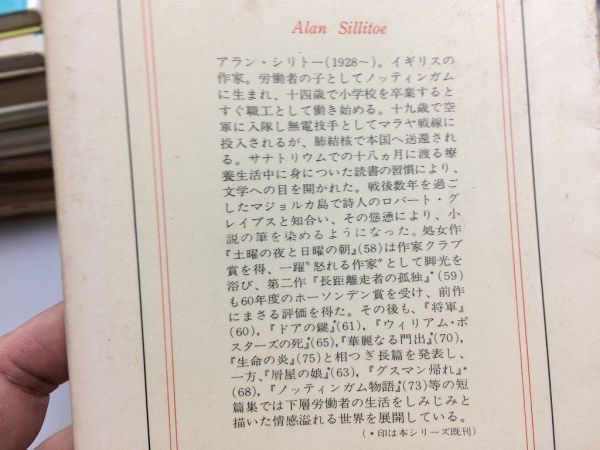 Alan Sillitoe
アラン・シリトー(1928〜)。イギリスの
作家。労働者の子としてノッティンガム
に生まれ、十四歳で小学校を卒業すると
すぐ職工として働き始める。十九歳で空
軍に入隊し無電技手としてマラヤ戦線に
投入されるが、肺結核で本国へ送還され
る。サナトリウムでの十八ヵ月に渡る療
養生活中に身についた読書の習慣により、
文学への目を開かれた。戦後数年を過ご
したマジョルカ島で詩人のロバート・グ
レイブスと知合い、その慫慂により、小
説の筆を染めるようになった。処女作
『土曜の夜と日曜の朝』(58)は作家クラブ
賞を得、一躍〝怒れる作家〟として脚光を
浴び、第二作『長距離走者の孤独』*(59)
も60年度のホーソンデン賞を受け、前作
にまさる評価を得た。その後も、『将軍』
(60),『ドアの鍵』*(61),『ウィリアム・ポ
スターズの死』*(65),『華麗なる門出』(70),
『生命の炎』(75)と相つぎ長篇を発表し、
一方、『屑屋の娘』*(63),『グスマン帰れ』*
(68),『ノッティンガム物語』*(73)等の短
篇集では下層労働者の生活をしみじみと
描いた情感溢れる世界を展開している。
(*印は本シリーズ既刊)